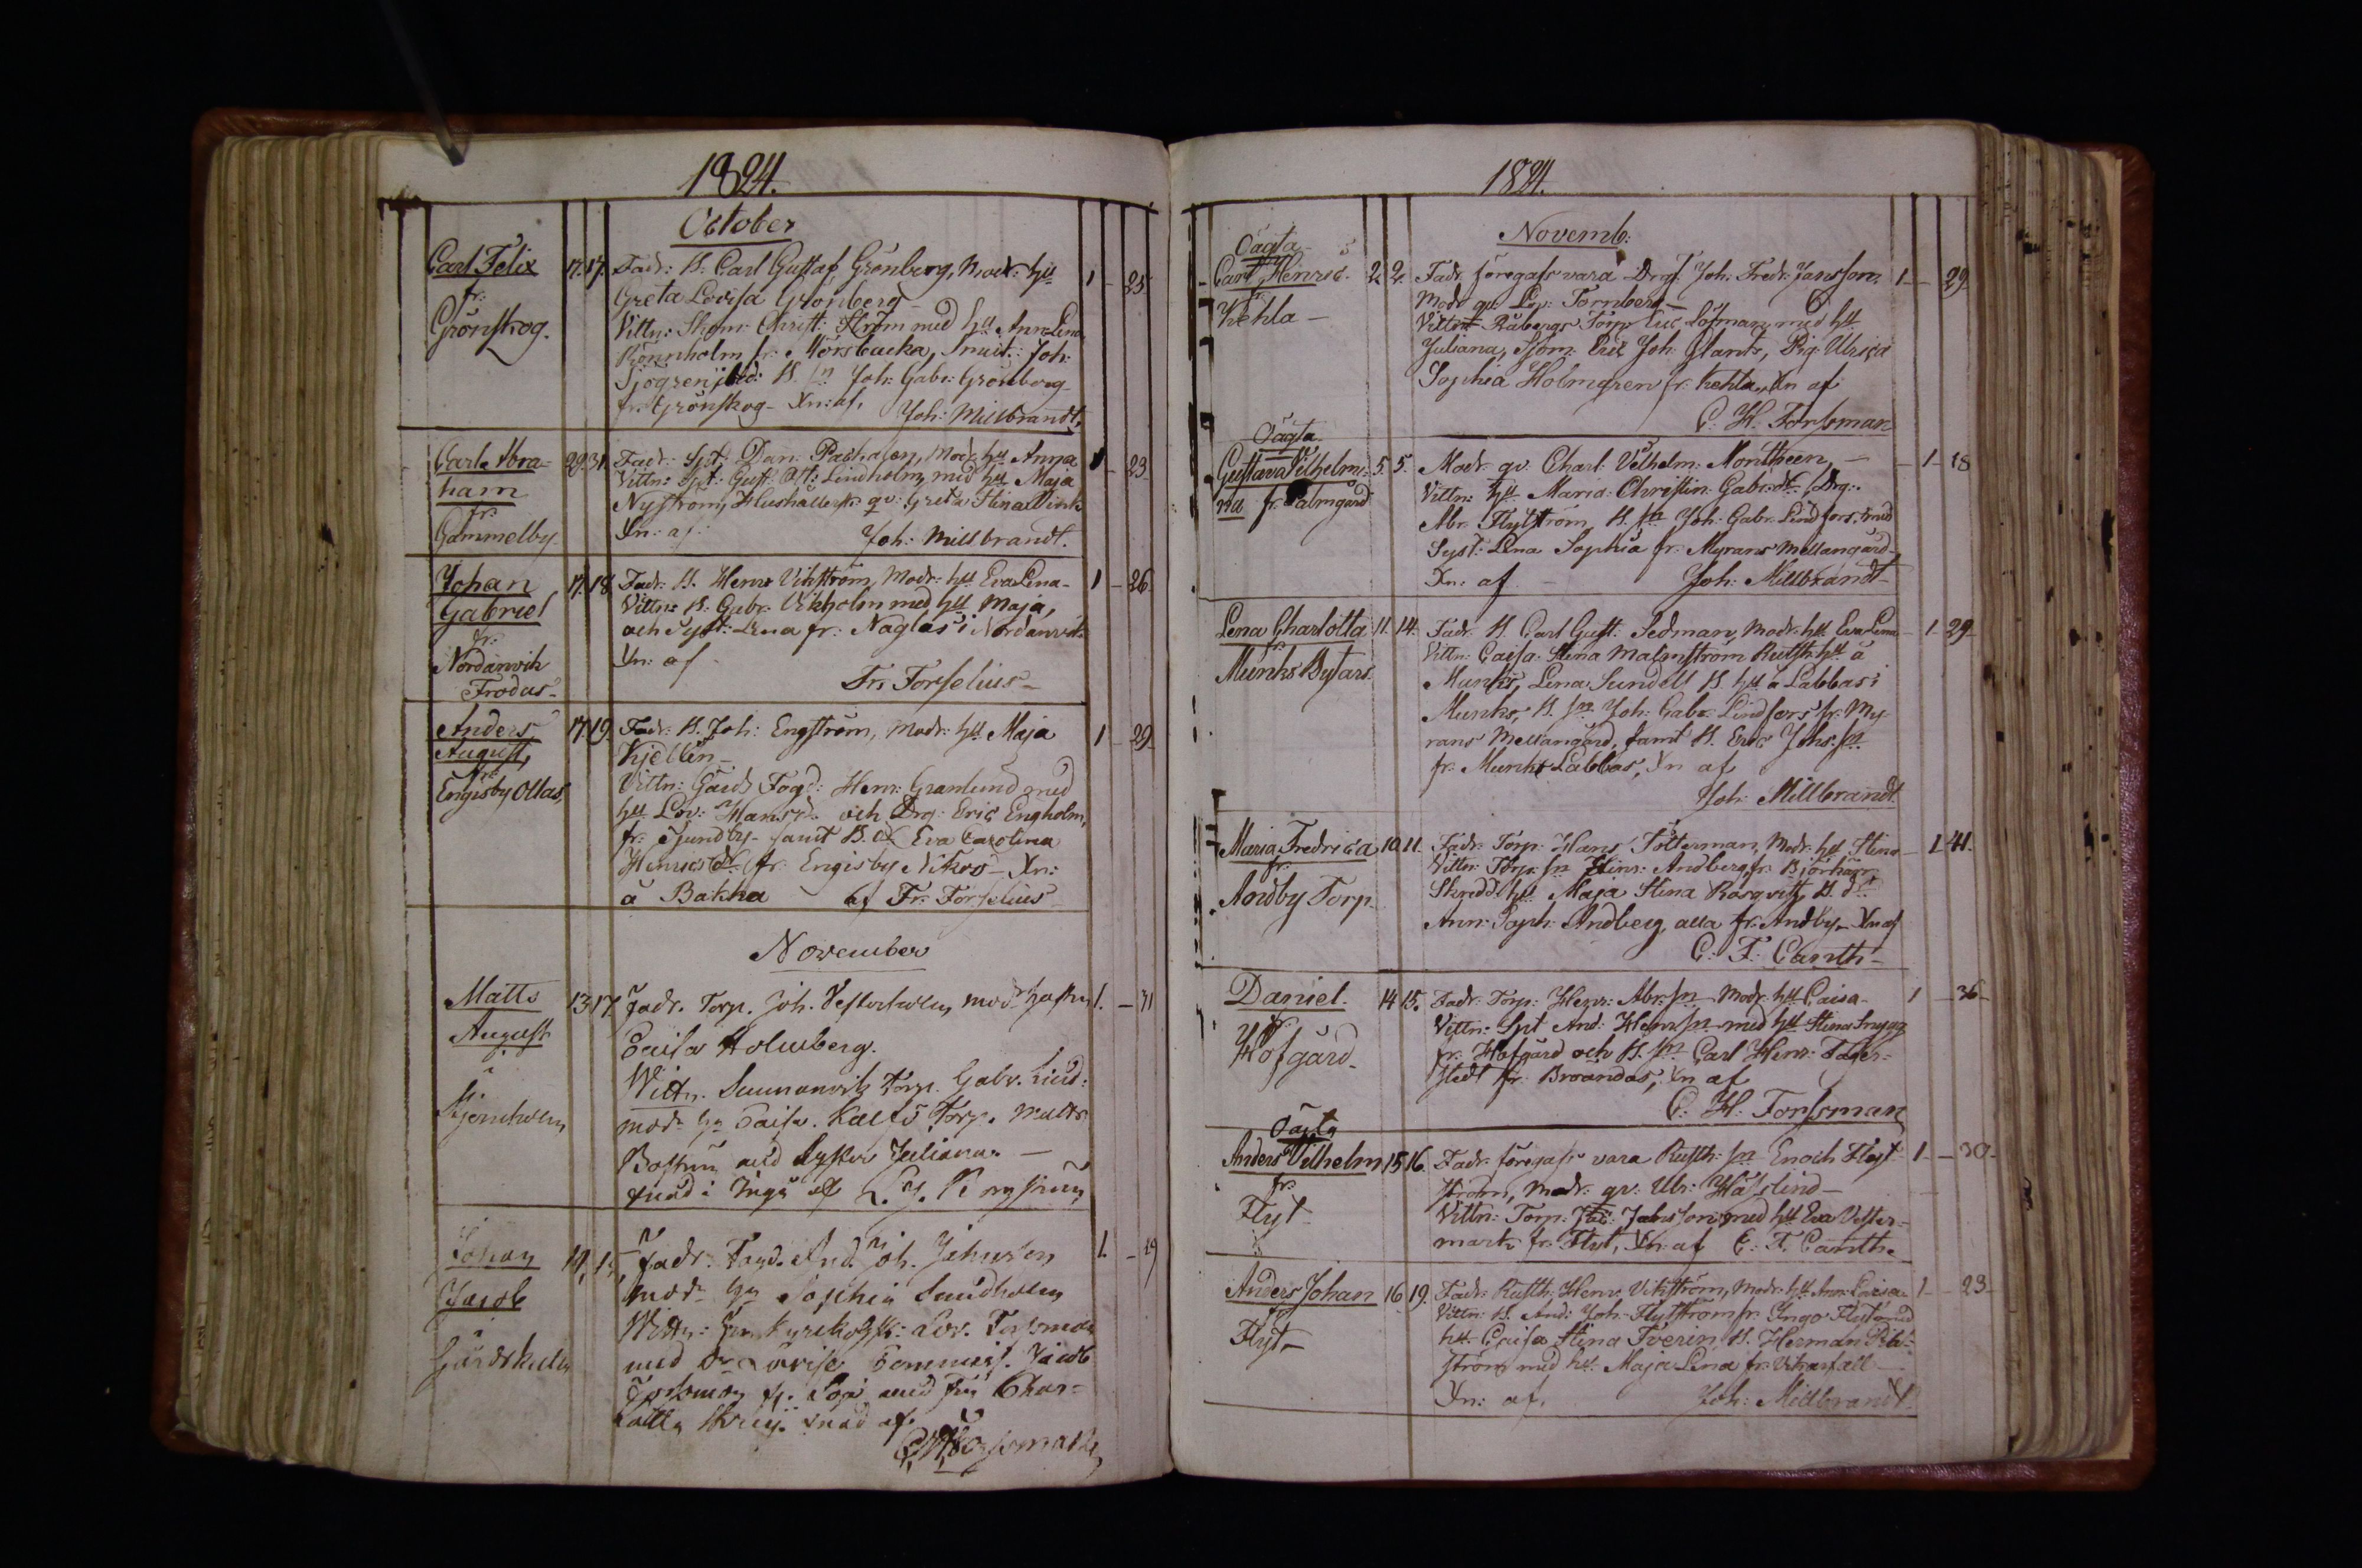 1824.
October
Carl Felix
fr.
Grönskog.
17. 17. Fadr: B. Carl Gustaf Grönberg, Modr: hu
Greta Lovisa Grönberg
Vittn: Skom: Christ: Ström med hu Ann Lena
Rönnholm fr. Mörsbacka, Smit: Joh:
Sjögren B. sn Joh: Gabr: Grönberg
fr. Grönskog - Xn: af. Joh: Millbrandt.
1 - 25
Carl Abra=
ham
fr.
Gammelby
29. 31. Fadr: Dan: Modr: hu Anna
Vittn: Gust: Lindholm med hu Maja
Nyström, qv: Greta Stina
Xn: af: Joh: Millbrandt.
1 - 23
Johan
Gabriel
fr.
Nordanvik
Frodus
17. 18. Fadr: B. Henr Vikström, Modr: hu Eva Lena
Vittn: B. Gabr: Vikholm med hu Maja,
och Syst: Lena fr: Naglas i Nordanvik
Xn: af
Fr. Forselius
1 - 26
Anders
August
fr.
Engisby Ollas
17. 19. Fadr: B. Joh: Engström, Modr: hu Maja
Kjellen
Vittn: Gårds Fogd: Henr: Granlund med
hu Lov: och Drg: Eric Engholm,
fr. Sjundby samt B. Eva Carolina
fr. Engisby Nikus - Xn:
å Bakka af Fr. Forselius
1 - 29
November
Matts
August
13 17 Fadr. Torp. Joh. Vesterholm, modr hustru
Caisa Holmberg.
Wittn. Torp. Gabr. Lind:
med hu Caisa. Torp. Matts
Boström med Syster Juliana. -
Xnad i Ingå af
1. - 31
Johan
Jacob
14. 15. Fadr. And. Joh. Johnson
modr hu Sophia Sundholm
Wittn: Lov. Forsman
med Lovisa Jacob
Forsman fr. med Char=
lotta Xnad af.
C. H. Forssman
1. - 19
1824.
Novemb:
Oägta
Carl Henric.
fr
Kehla -
2. 2. Fadr föregafs vara Drg. Joh: Fredr: Jansson.
Modr qv: Lov: Törnberg -
Vittn: Råbergs Torp Eric Löfman med hu
Juliana, Sjom: Eric Joh: Glants, Pig. Ulrica
Sophia Holmgren fr: Kehla, Xn af
C. H. Forssman
1 - 29
Oägta
Gustava Vilhelmi=
na fr. Palmgård
5. 5. Modr. qv. Charl: Vilhelm: Montheen, -
Vittn: hu Maria Christin: Gabr:dr. Drg:
Abr: Flytström, B. sn Joh: Gabr: Lindfors med
Syst: Lena Sophia fr. Myrans Mellangård
Xn: af - Joh: Millbrandt
1 - 18
Lena Charlotta
fr
Munks Bytars
11. 14. Fadr. B. Carl Gust: Sedman, Modr: hu Eva Lena
Vittn: Caisa Stina Malmström Rusth: hu å
Munks, Lena Sundell B. hu å Labbas i
Munks, B. sn Joh: Gabr: Lindfors fr. My=
rans Mellangård, samt B. Eric Johs: sn
fr. Munks Labbas, Xn af
Joh: Millbrandt
1 - 29
Maria Fredrica
fr
Andby Torp
10 11. Fadr: Torp: Hans Tötterman, Modr: hu Stina
Vittn: Torp: sn Hinr: Andberg, fr. Björkkärr,
Skrädd: hu Maja Stina Rosqvist, B. dr
Ann: Soph: Andberg, alla fr. Andby - Xn af
C. F. Canth -
1 - 41.
Daniel.
fr
Hofgård
14 15. Fadr: Torp: Henr: Abr: sn Modr: hu Caisa -
Vittn: Spt And: Henr: sn med hu Stina Snygg
fr. Hofgård och B. sn Carl Henr: Fager=
stedt fr. Broandas, Xn af
C. H. Forssman
1 - 36
Oägta
Anders Vilhelm
fr.
Flyt
15 16. Fadr: föregafs vara Rusth: sn Enoch Flyt=
ström, Modr: qv: Ulr:
Vittn: Torp: Jac: Jabusson med hu Eva Vester=
mark fr. Flyt, Xn: af C. F. Canth.
1 - 30
Anders Johan
fr.
Flyt -
16 19. Fadr: Rusth: Henr: Vikström, Modr: hu Ann Lovisa
Vittn: B. And: Joh: Flytström fr. Ingo Flyt med
hu Caisa Stina Tverin, B. Herman
ström med hu Maja Lena fr. Vikarfall
Xn: af. Joh: Millbrandt
1 - 23